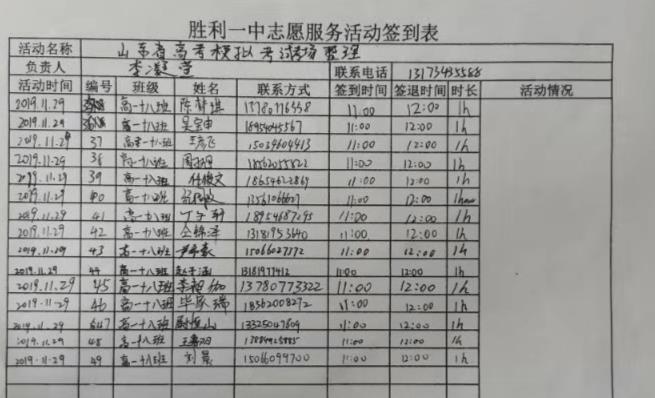 胜利一中志愿服务活动签到表
活动名称 山东省高考模拟考试考场整理
负责人 李 联系电话 13173435588
活动时间 编号 班级 姓名 联系方式 签到时间 签退时间 时长 活动情况
2019.11.29 高一十八班 陈静琪 11:00 12:00 1h
2019.11.29 高一十八班 11:00 12:00 1h
2019.11.29 37 高一十八班 15034604413 11:00 12:00 1h
2019.11.29 38 高一十八班 11:00 12:00 1h
2019.11.29 39 高一十八班 11:00 12:00 1h
2019.11.29 40 高一十八班 11:00 12:00
2019.11.29 41 高一十八班 11:00 12:00 1h
2019.11.29 42 高一十八班 仝锦泽 13181953640 11:00 12:00 1h
2019.11.29 43 高一十八班 15066027172 11:00 12:00 1h
2019.11.29 44 高一十八班 13181977412 11:00 12:00 1h
2019.11.29 45 高一十八班 13780773322 11:00 12:00 1h
2019.11.29 46 高一十八班 毕家瑞 18562008272 11:00 12:00 1h
2019.11.29 47 高一十八班 13325047809 11:00 12:00 1h
2019.11.29 48 高一十八班 11:00 12:00 1h
2019.11.29 49 高一十八班 刘景 15066099700 11:00 12:00 1h